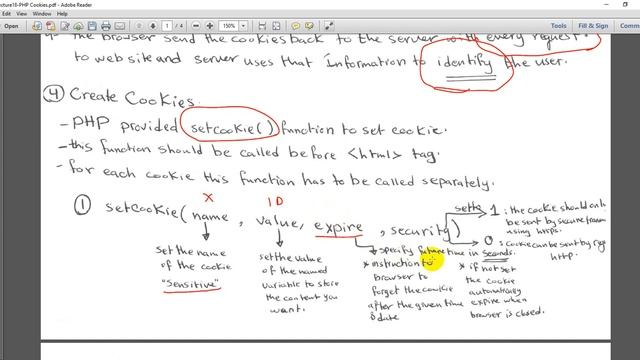 cture18-PHP Cookies.pdf - Adobe Reader
1 / 4
150%
Tools
Fill & Sign
Comment
the browser send the cookies back to the server with every request.
to web site and server uses that Information to identify the user.
4 Create Cookies.
- PHP provided setcookie() function to set cookie.
- this function should be called before <html> tag.
- for each cookie this function has to be called separately.
X ID
1 setcookie( name, value, expire, security)
set the name
of the cookie
"sensitive"
set the value
of the named
variable to store
the content you
want.
specify future time in Seconds.
* instruction to
browser to
forget the cookie
after the given time
& date
* if not set
the cookie
automatically
expire when
browser is closed.
1 : the cookie should only
be sent by secure
using https.
0 : cookie can be sent by
http.